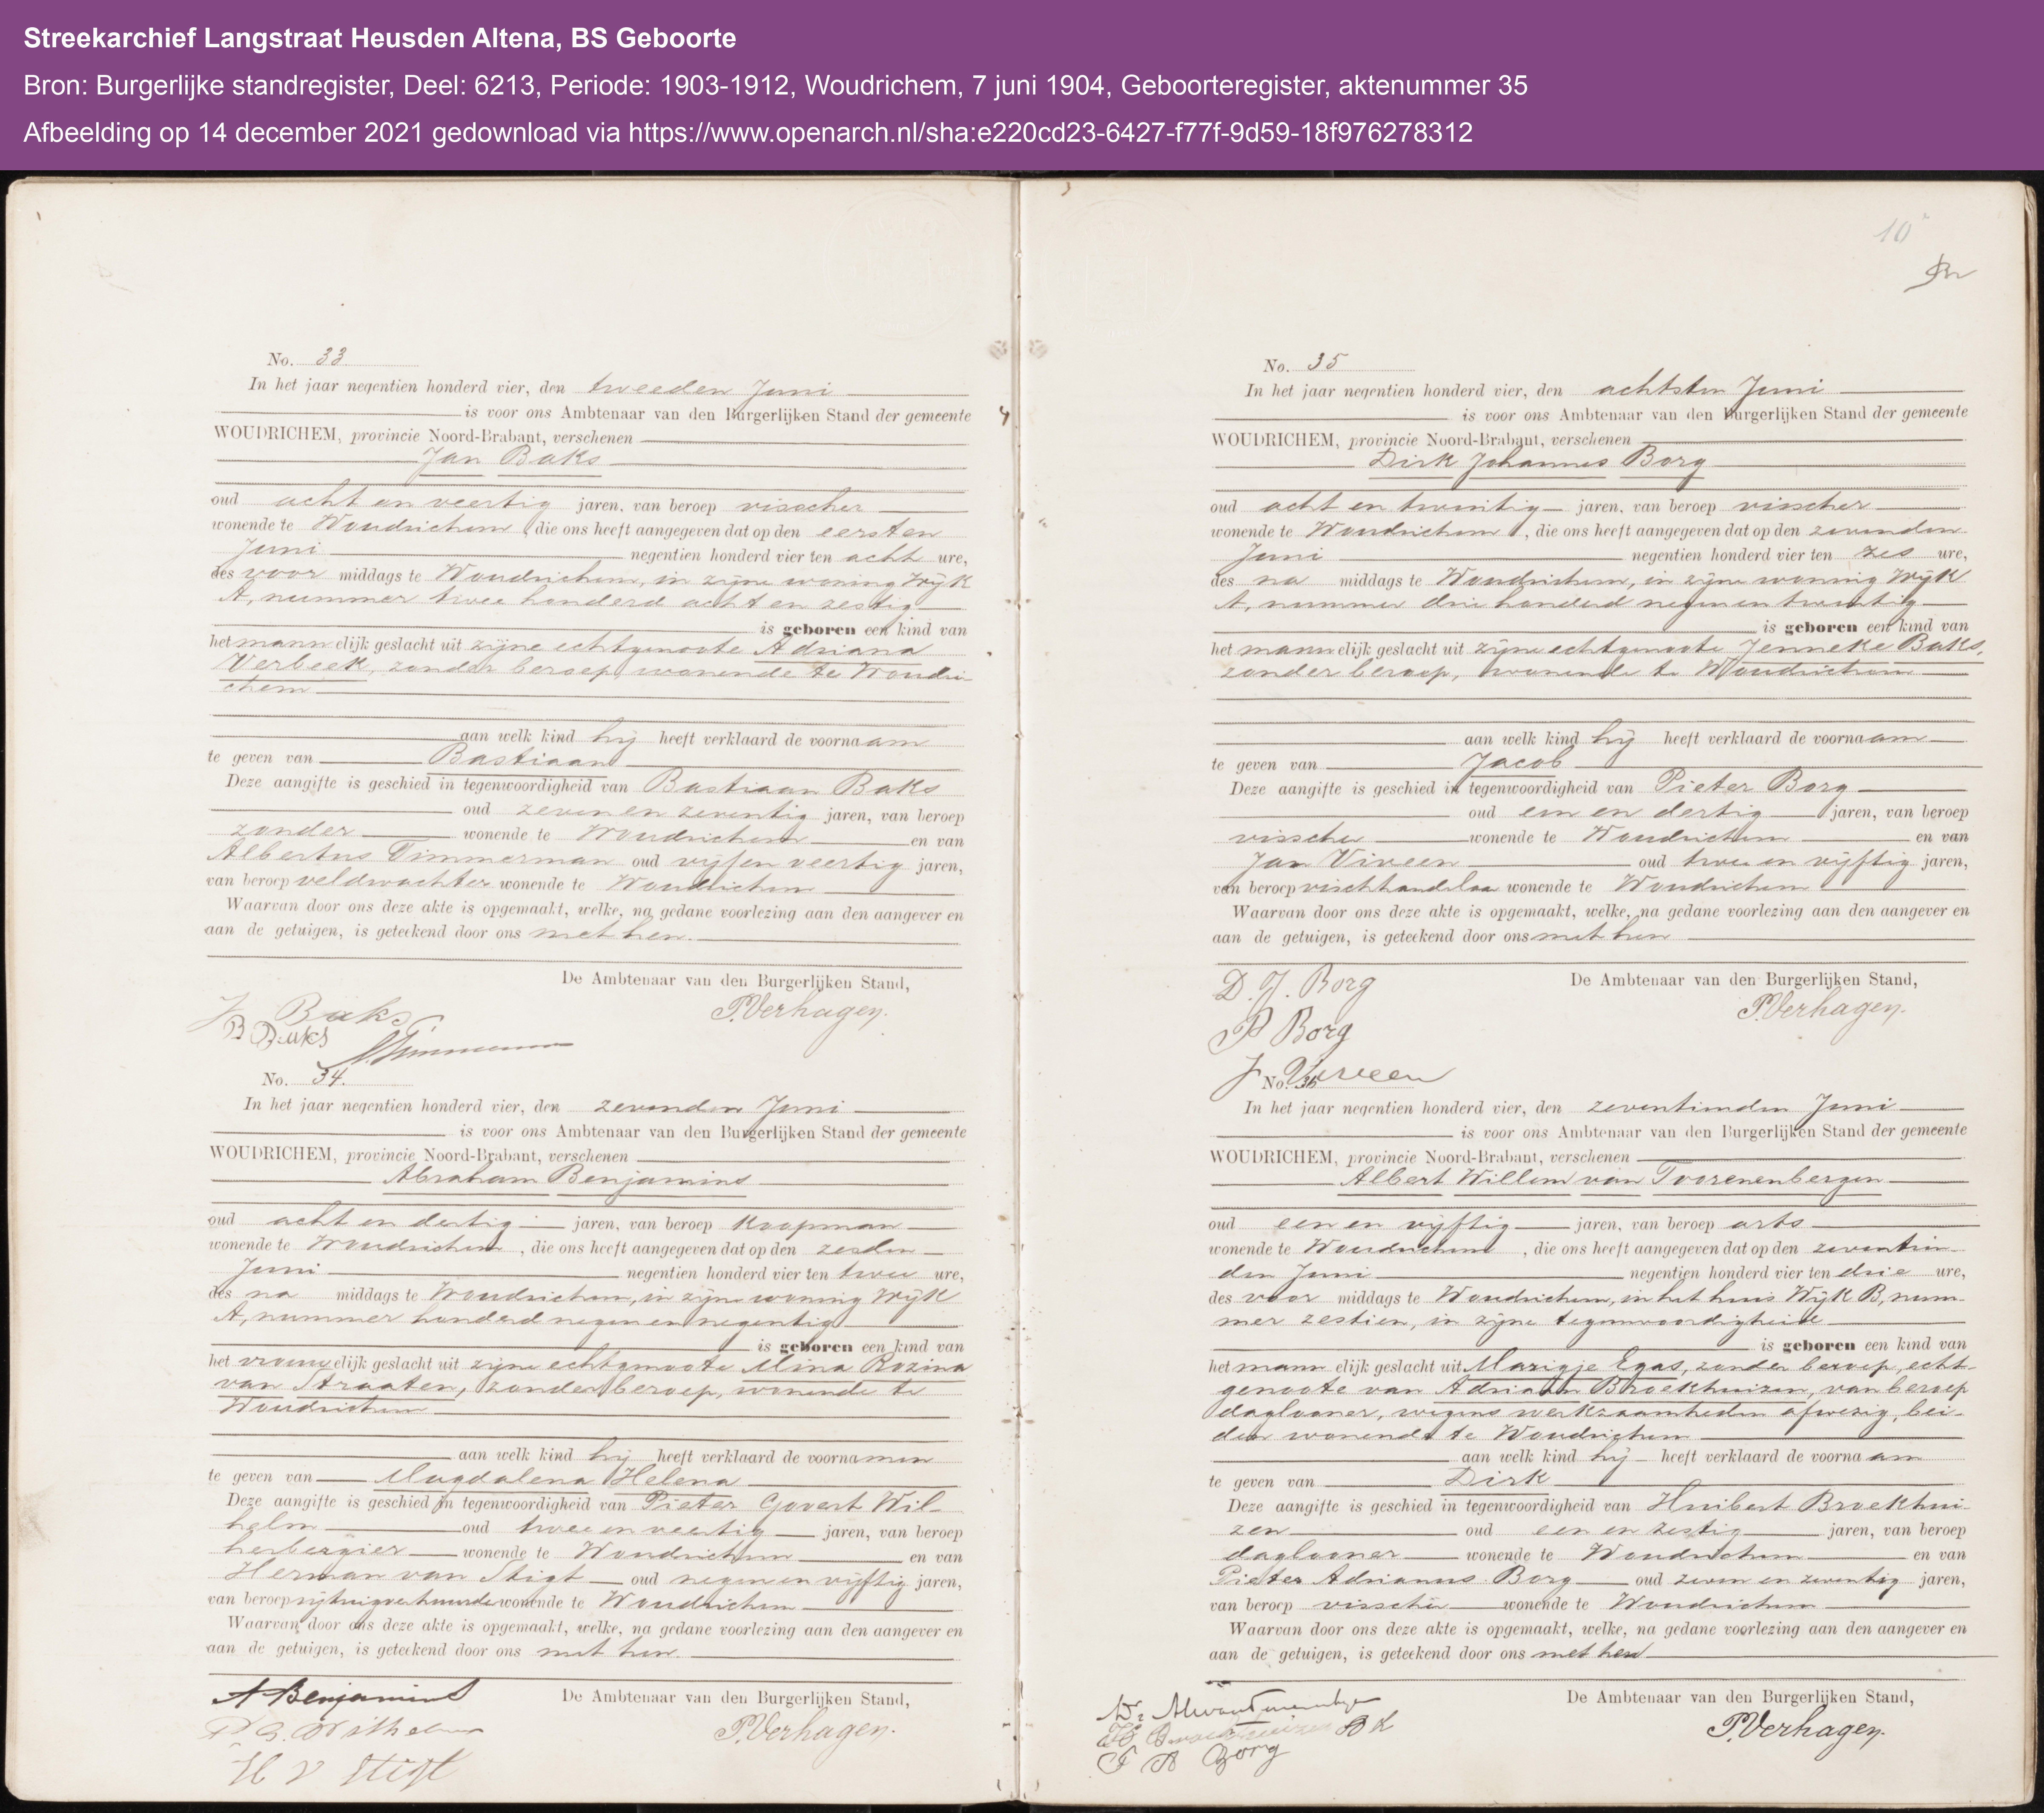 Streekarchief Langstraat Heusden Altena, BS Geboorte
Bron: Burgerlijke standregister, Deel: 6213, Periode: 1903-1912, Woudrichem, 7 juni 1904, Geboorteregister, aktenummer 35
Afbeelding op 14 december 2021 gedownload via https://www.openarch.nl/sha:e220cd23-6427-f77f-9d59-18f976278312
No. 33
In het jaar negentien honderd vier, den tweeden Juni
is voor ons Ambtenaar van den Burgerlijken Stand der gemeente
WOUDRICHEM, provincie Noord-Brabant, verschenen
Jan Baks
oud acht en veertig jaren, van beroep visscher
wonende te Woudrichem, die ons heeft aangegeven dat op den eersten
Juni negentien honderd vier ten acht ure,
des voor middags te Woudrichem, in zijne woning Wijk
A, nummer twee honderd acht en zestig
is geboren een kind van
het mannelijk geslacht uit zijne echtgenoote Adriana
Verbeek, zonder beroep, wonende te Woudri-
chem
aan welk kind hij heeft verklaard de voornaam
te geven van Bastiaan
Deze aangifte is geschied in tegenwoordigheid van Bastiaan Baks
oud zeven en zeventig jaren, van beroep
zonder wonende te Woudrichem en van
Albertus Timmerman oud vijf en veertig jaren,
van beroep veldwachter wonende te Woudrichem
Waarvan door ons deze akte is opgemaakt, welke, na gedane voorlezing aan den aangever en
aan de getuigen, is geteekend door ons met hen.
De Ambtenaar van den Burgerlijken Stand,
J Baks
P. Verhagen.
B Baks
No. 34.
In het jaar negentien honderd vier, den zevenden Juni
is voor ons Ambtenaar van den Burgerlijken Stand der gemeente
WOUDRICHEM, provincie Noord-Brabant, verschenen
Abraham Benjamins
oud acht en dertig jaren, van beroep koopman
wonende te Woudrichem, die ons heeft aangegeven dat op den zesden
Juni negentien honderd vier ten twee ure,
des na middags te Woudrichem, in zijne woning Wijk
A, nummer honderd negen en negentig
is geboren een kind van
het vrouwelijk geslacht uit zijne echtgenoote Mina Rozina
van Straaten, zonder beroep, wonende te
Woudrichem
aan welk kind hij heeft verklaard de voornamen
te geven van Magdalena Helena
Deze aangifte is geschied in tegenwoordigheid van Pieter Govert Wil-
helm oud twee en veertig jaren, van beroep
herbergier wonende te Woudrichem en van
Herman van Stigt oud negen en vijftig jaren,
van beroep rijtuigverhuurder wonende te Woudrichem
Waarvan door ons deze akte is opgemaakt, welke, na gedane voorlezing aan den aangever en
aan de getuigen, is geteekend door ons met hen.
A Benjamins
De Ambtenaar van den Burgerlijken Stand,
P G. Wilhelm
P. Verhagen.
H v Stigt
10
No. 35
In het jaar negentien honderd vier, den achtsten Juni
is voor ons Ambtenaar van den Burgerlijken Stand der gemeente
WOUDRICHEM, provincie Noord-Brabant, verschenen
Dirk Johannes Borg
oud acht en twintig jaren, van beroep visscher
wonende te Woudrichem, die ons heeft aangegeven dat op den zevenden
Juni negentien honderd vier ten zes ure,
des na middags te Woudrichem, in zijne woning Wijk
A, nummer drie honderd negen en twintig
is geboren een kind van
het mannelijk geslacht uit zijne echtgenoote Jenneke Baks,
zonder beroep, wonende te Woudrichem
aan welk kind hij heeft verklaard de voornaam
te geven van Jacob
Deze aangifte is geschied in tegenwoordigheid van Pieter Borg
oud een en dertig jaren, van beroep
visscher wonende te Woudrichem en van
Jan Viveen oud twee en vijftig jaren,
van beroep vischhandelaar wonende te Woudrichem
Waarvan door ons deze akte is opgemaakt, welke, na gedane voorlezing aan den aangever en
aan de getuigen, is geteekend door ons met hen
D. J. Borg
De Ambtenaar van den Burgerlijken Stand,
P. Verhagen.
P Borg
J Viveen
No. 36
In het jaar negentien honderd vier, den zeventienden Juni
is voor ons Ambtenaar van den Burgerlijken Stand der gemeente
WOUDRICHEM, provincie Noord-Brabant, verschenen
Albert Willem van Toorenenbergen
oud een en vijftig jaren, van beroep arts
wonende te Woudrichem, die ons heeft aangegeven dat op den zeventien-
den Juni negentien honderd vier ten drie ure,
des voor middags te Woudrichem, in het huis Wijk B, num-
mer zestien, in zijne tegenwoordigheid
is geboren een kind van
het mannelijk geslacht uit Marigje Egas, zonder beroep, echt-
genoote van Adriaan Broekhuizen, van beroep
daglooner, wegens werkzaamheden afwezig, bei-
den wonende te Woudrichem
aan welk kind hij heeft verklaard de voornaam
te geven van Dirk
Deze aangifte is geschied in tegenwoordigheid van Huibert Broekhui-
zen oud een en zestig jaren, van beroep
daglooner wonende te Woudrichem en van
Pieter Adrianus Borg oud zeven en zeventig jaren,
van beroep visscher wonende te Woudrichem
Waarvan door ons deze akte is opgemaakt, welke, na gedane voorlezing aan den aangever en
aan de getuigen, is geteekend door ons met hen
De Ambtenaar van den Burgerlijken Stand,
P. Verhagen.
P A Borg